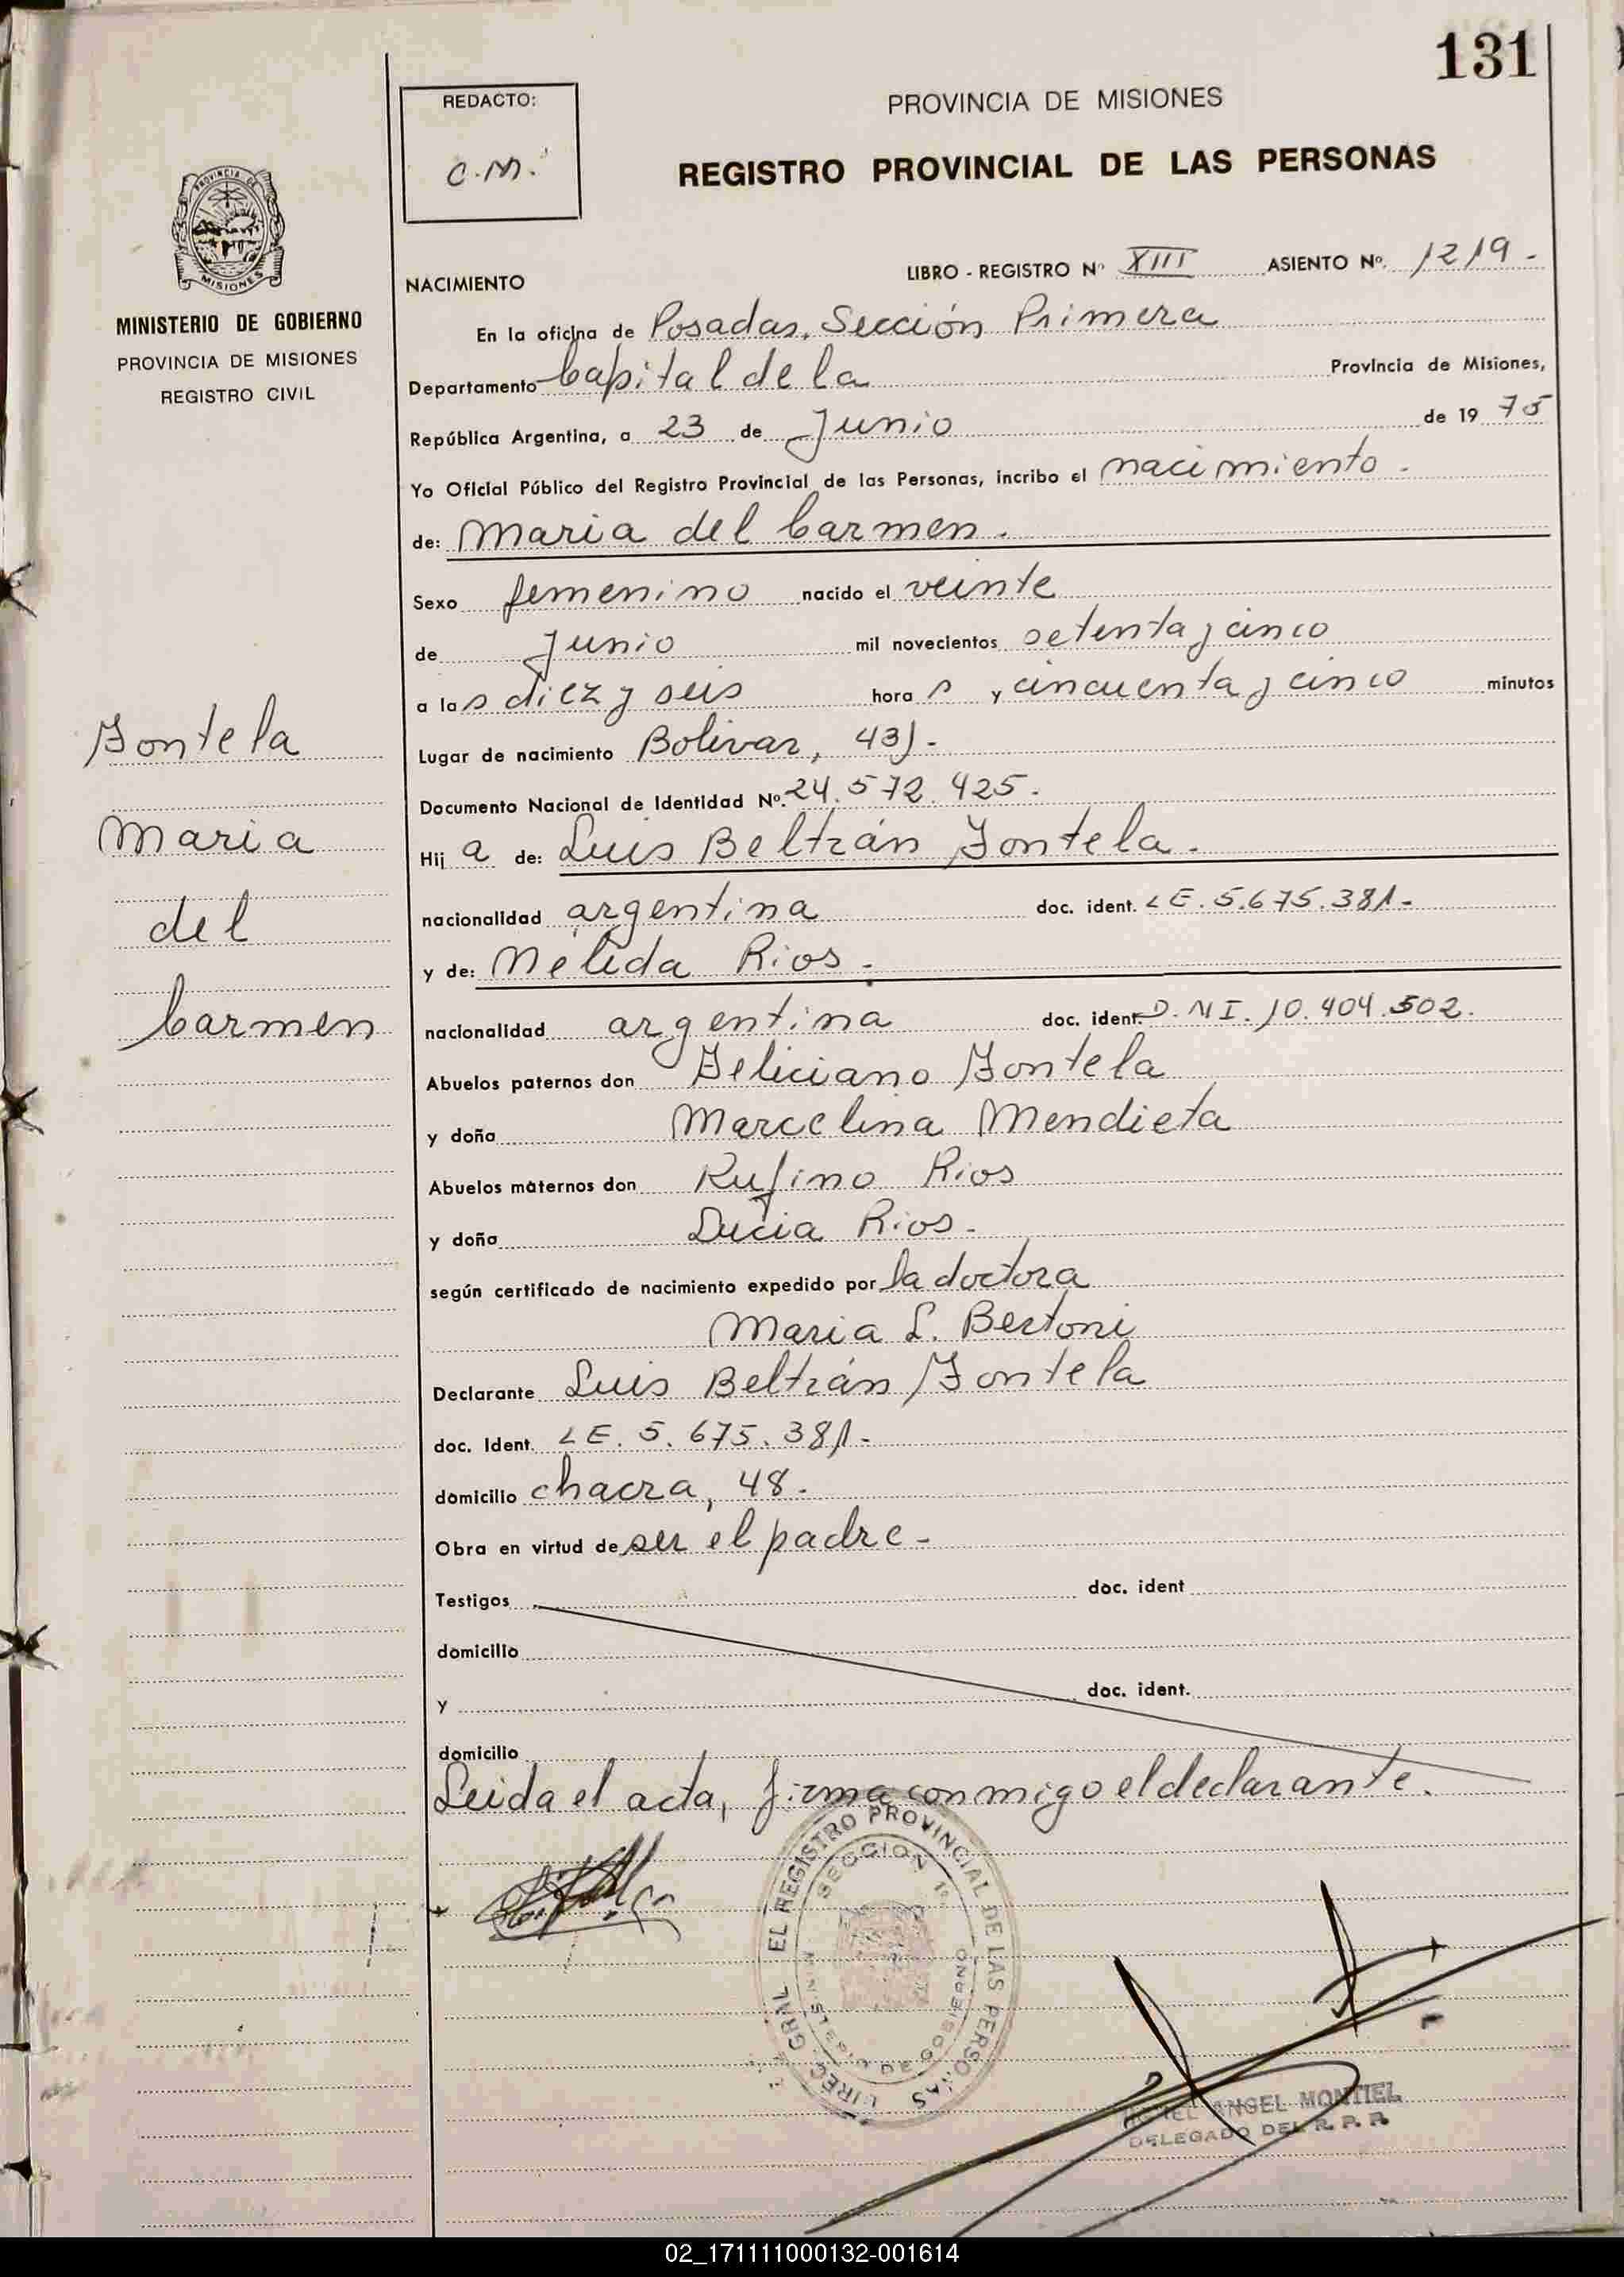 131
REDACTO:
C.M.
PROVINCIA DE MISIONES
REGISTRO PROVINCIAL DE LAS PERSONAS
PROVINCIA DE
MISIONES
MINISTERIO DE GOBIERNO
PROVINCIA DE MISIONES
REGISTRO CIVIL
Fontela
Maria
del
Carmen
NACIMIENTO
LIBRO - REGISTRO Nº XIII ASIENTO Nº. 1219.-
En la oficina de Posadas, Sección Primera
Departamento Capital de la Provincia de Misiones,
República Argentina, a 23 de Junio de 19 75
Yo Oficial Público del Registro Provincial de las Personas, incribo el nacimiento.-
de: Maria del Carmen.-
Sexo femenino nacido el veinte
de Junio mil novecientos setenta y cinco
a las diez y seis horas y cincuenta y cinco minutos
Lugar de nacimiento Bolivar, 431.-
Documento Nacional de Identidad Nº. 24.572.425.-
Hija de: Luis Beltrán Fontela.-
nacionalidad argentina doc. ident. LE. 5.675.381.-
y de: Nélida Rios.-
nacionalidad argentina doc. ident. D.N.I. 10.404.502.
Abuelos paternos don Feliciano Fontela
y doña Marcelina Mendieta
Abuelos maternos don Rufino Rios
y doña Lucia Rios.-
según certificado de nacimiento expedido por la doctora
Maria L. Bertoni
Declarante Luis Beltrán Fontela
doc. Ident. LE. 5.675.381.-
domicilio chacra, 48.-
Obra en virtud de ser el padre.-
Testigos doc. ident
domicilio
y doc. ident.
domicilio
Leida el acta, firma conmigo el declarante.
GRAL EL REGISTRO PROVINCIAL DE LAS PERSONAS
SECCION 1ª
MINISTERIO DE GOBIERNO
ANGEL MONTIEL
DELEGADO DEL R. P. P.
02_171111000132-001614